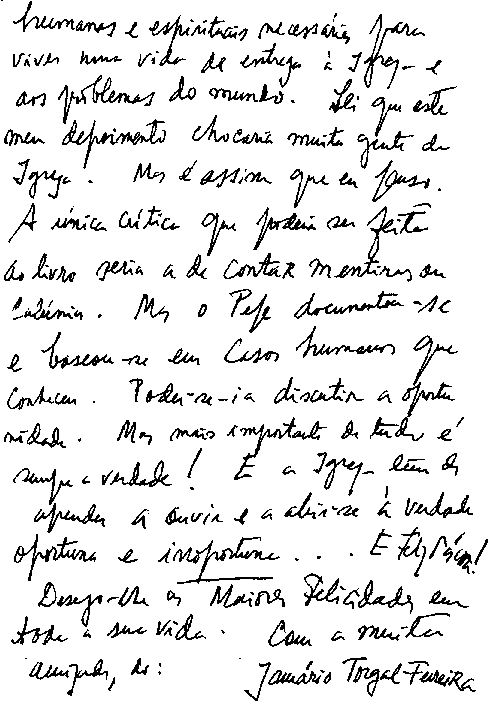 humanas e espirituais necessárias para
viver uma vida de entrega à Igreja e
aos problemas do mundo. Sei que este
meu depoimento chocaria muita gente da
Igreja. Mas é assim que eu penso.
A única crítica que poderia ser feita
ao livro seria a de contar mentiras ou
calúnias. Mas o Pepe documentou-se
e baseou-se em casos humanos que
conheceu. Poder-se-ia discutir a oportu
nidade. Mas mais importante de tudo é
sempre a verdade! E a Igreja tem de
aprender a ouvir e a abrir-se à verdade
oportuna e inoportuna... E Feliz Páscoa!
Desejo-lhe as Maiores Felicidades em
toda a sua vida. Com a muita
amizade, do:
Januário Torgal Ferreira